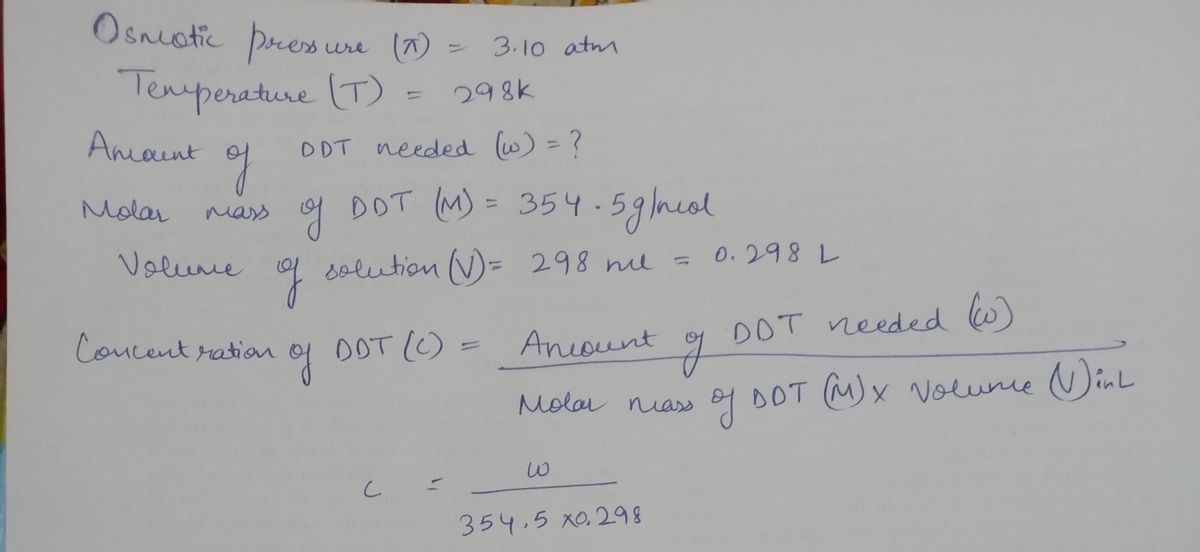 Osmotic pressure (π) = 3.10 atm
Temperature (T) = 298K
Amount of DDT needed (w) = ?
Molar mass of DDT (M) = 354.5g/mol
Volume of solution (V) = 298 ml = 0.298 L
Concentration of DDT (C) = Amount of DDT needed (w)
Molar mass of DDT (M) x Volume (V) in L
C = w
354.5 x0.298